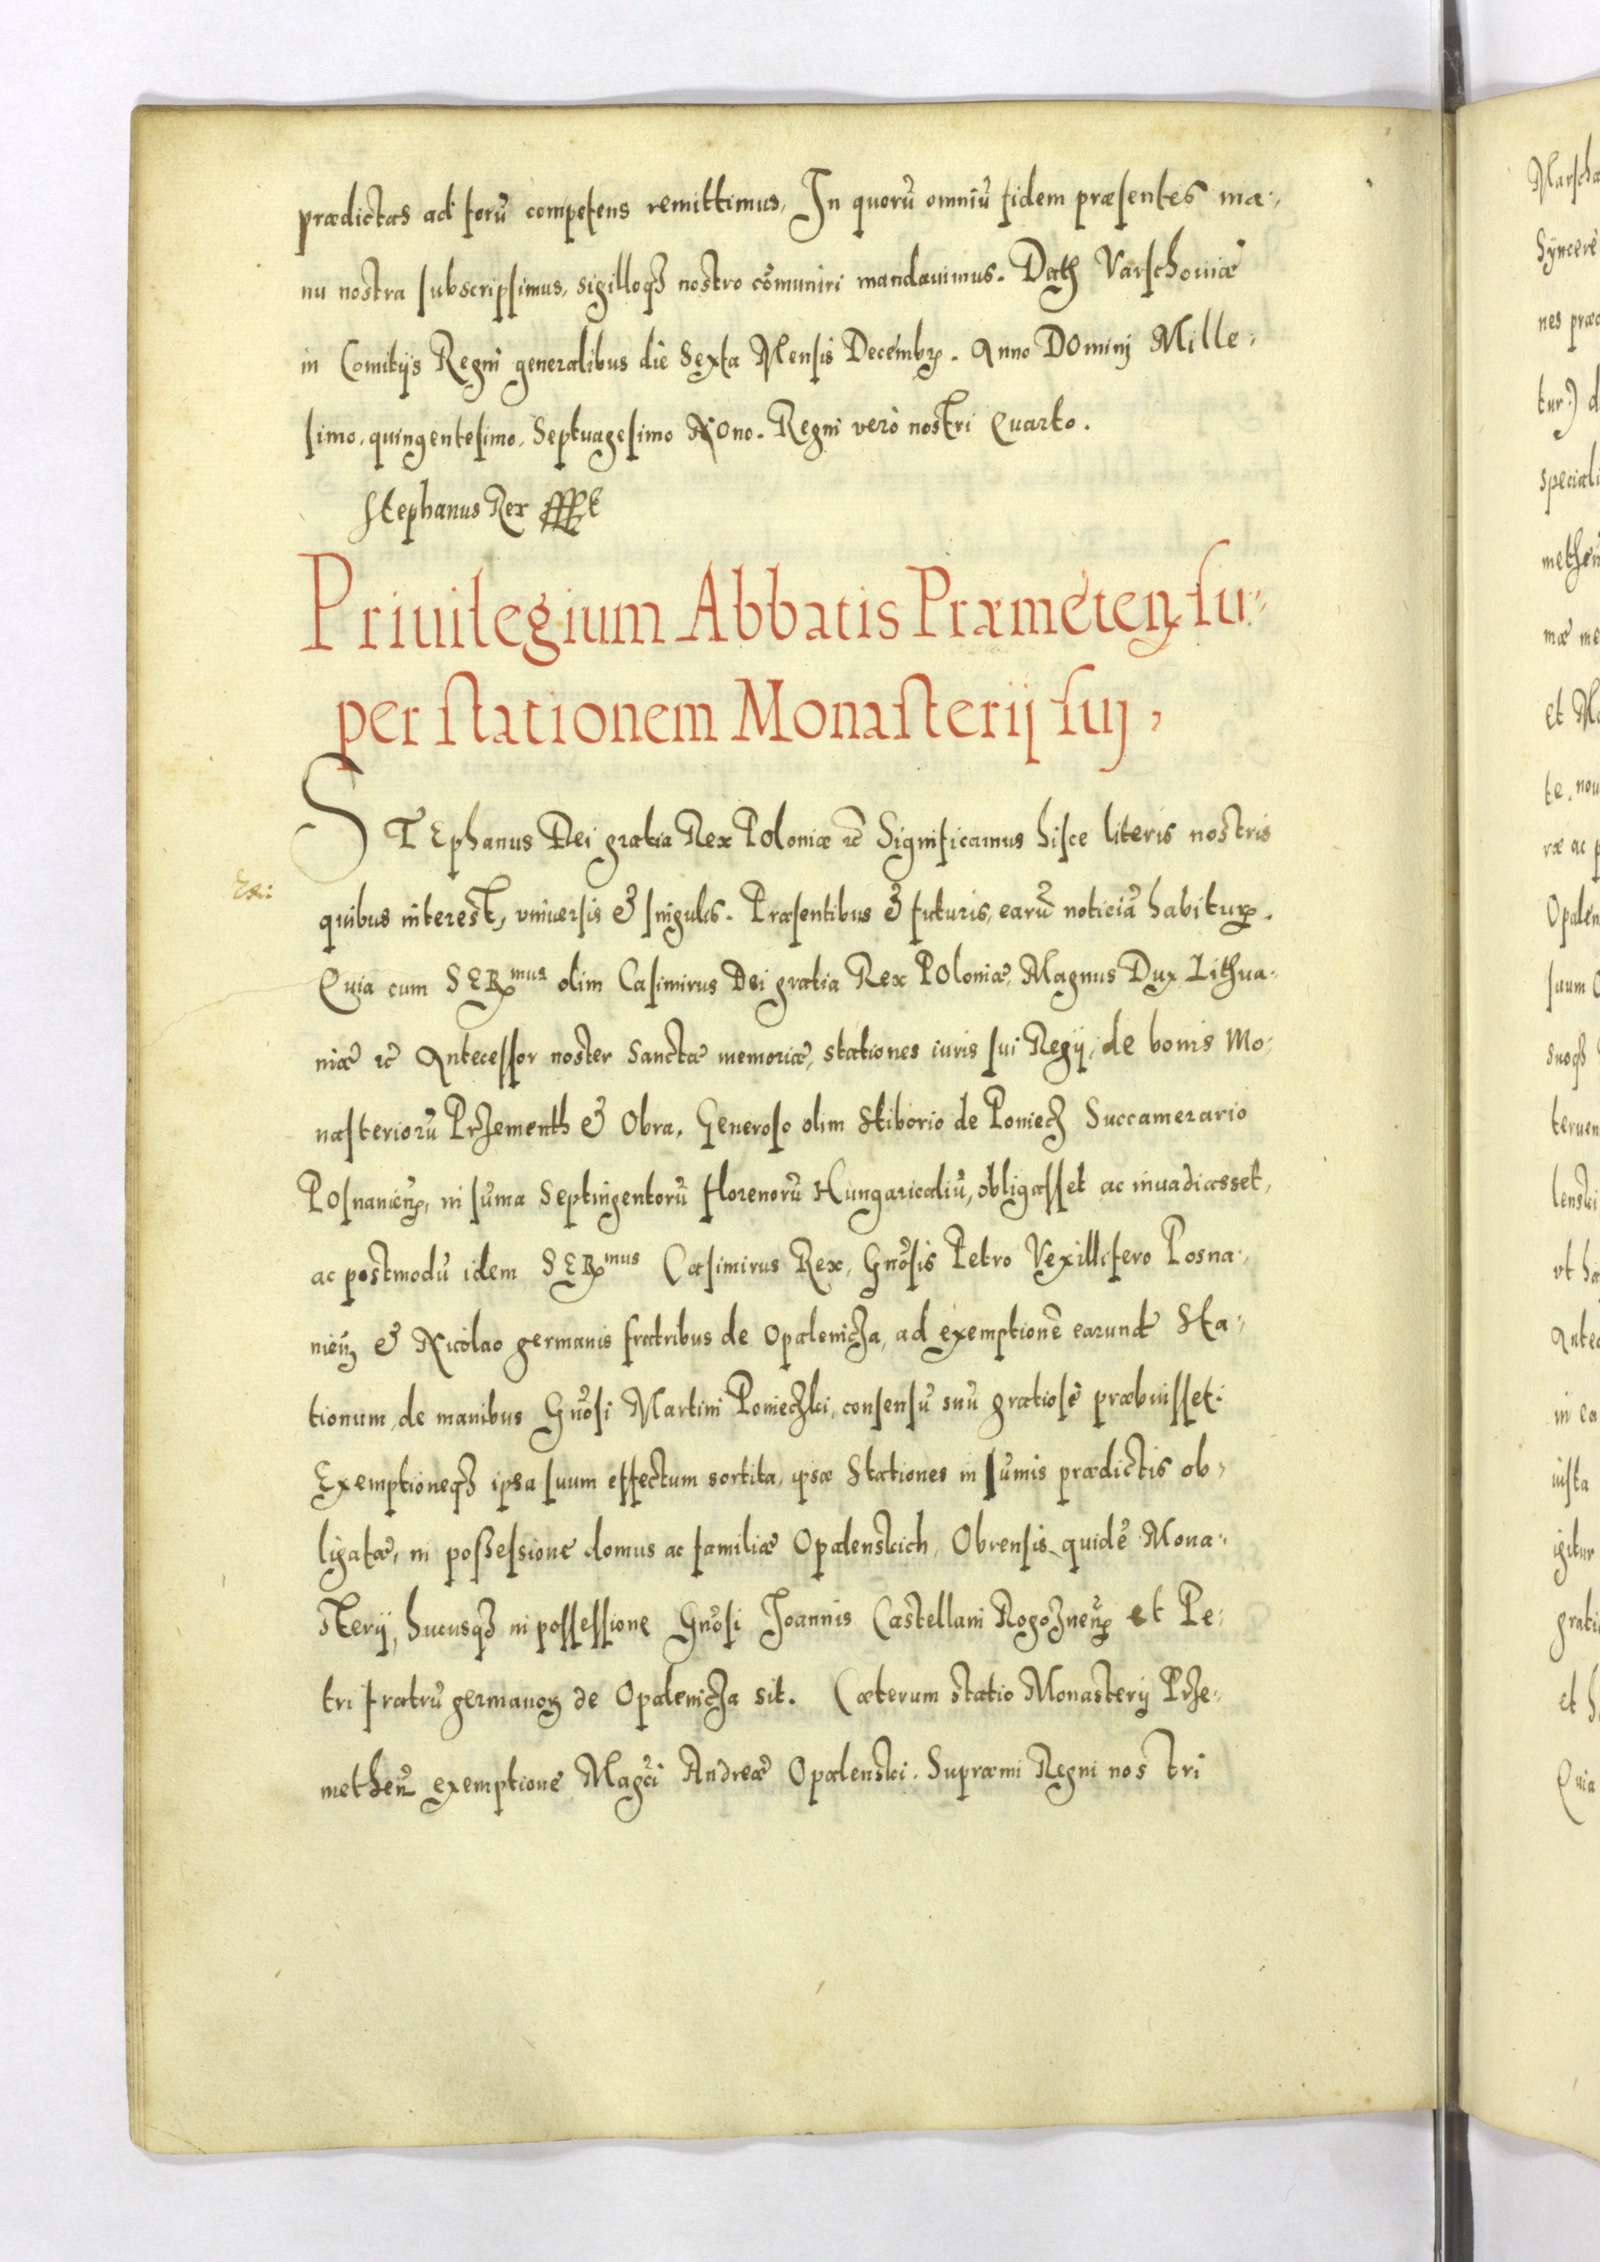 prædictas ad forū competens remittimus, In quorū omniū fidem præsentes ma-
nu nostra subscripsimus, sigilloqȝ nostro cōmuniri mandauimus. Dath Varschouiæ
in Comitijs Regni generalibus die Sexta Mensis Decembr. Anno DOminj Mille-
simo, quingentesimo, Septuagesimo NOno. Regni verò nostri Quarto.
Stephanus Rex
Priuilegium Abbatis Præmeten su-
per stationem Monasterij suj,
STEphanus Dei gratia Rex POloniæ etc Significamus hisce literis nostris
quibus interest, vniuersis & singulis. Præsentibus & futuris, earū noticiā habitur.
Quia cum SERmus olim Casimirus Dei gratia Rex POloniæ, Magnus Dux Lithua-
niæ etc Antecessor noster Sanctæ memoriæ, stationes iuris sui Regij, de bonis Mo-
nasteriorū Przementh & Obra, Generoso olim Stiborio de Poniecz Succamerario
POsnanien, in sūma Septingentorū florenorū Hungaricaliū, obligasset ac inuadiasset,
ac postmodū idem SERmus Casimirus Rex, Gnōsis Petro Vexillifero Posna-
nien & Nicolao germanis fratribus de Opalenicza, ad exemptionē earund Sta-
tionum, de manibus Gnōsi Martini Ponieczki, consensū suū gratiosè præbuisset:
Exemptioneqȝ ipsa suum effectum sortita, ipsæ Stationes in sūmis prædictis ob-
ligatæ, in poßessione domus ac familiæ Opalenskich, Obrensis quidē Mona-
sterij, hucusqȝ in possessione Gnōsi Joannis Castellani Rogoznen et Pe-
tri fratrū germanoꝝ de Opalenicza sit. Cæterum statio Monasterij Prze-
methen exemptione Magci Andreæ Opalenski. Supræmi Regni nostri